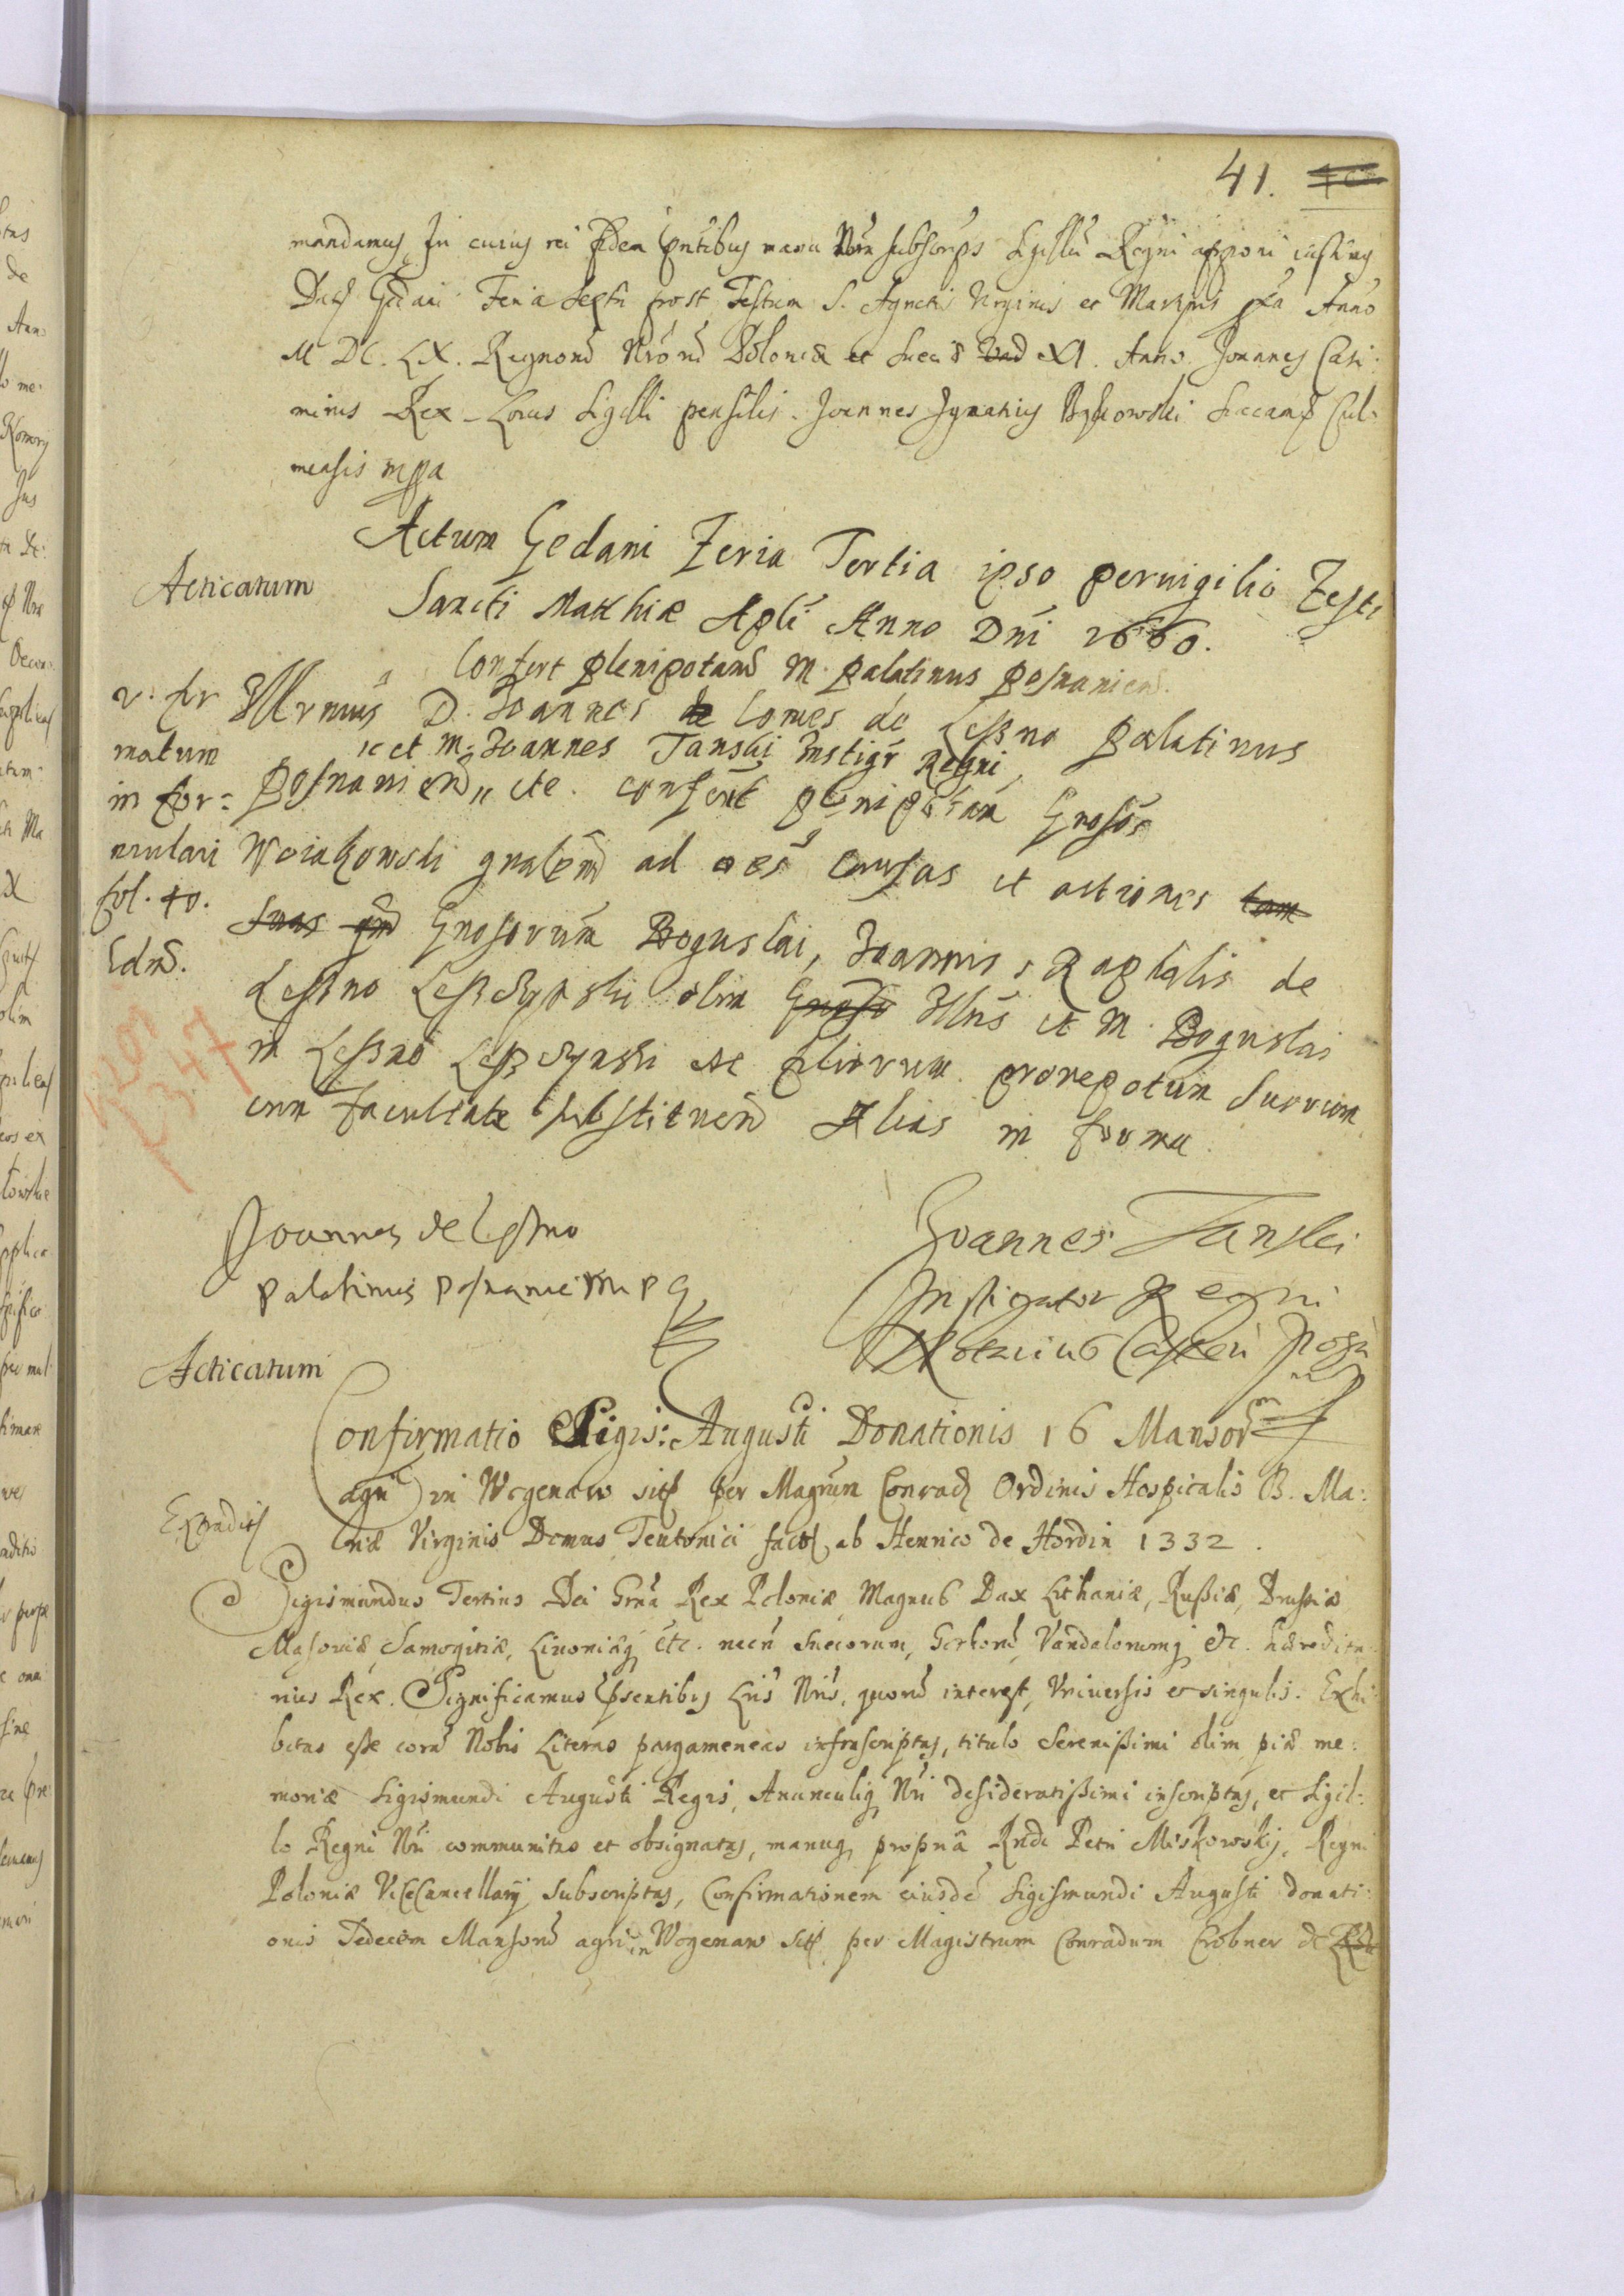 41.
mandamus. In cuius rei fidem pntibus manu Nra subscriptis Sigillu Regni apponi iussimus
Dat Gedani Feria Sexta post Festum S. Agnetis Virginis et Martyris pxa Anno
M DC. LX. Regnoru Nroru Poloniæ et Sueciæ XI. Anno. Joannes Casi:
mirus Rex. Locus Sigilli pensilis. Joannes Ignatius Bąkowski Succamer Cul:
mensis mppa
Acticatum
Actum Gedani Feria Tertia ipso pervigilio Festi
Sancti Matthiæ Apli Anno Dni 1660.
Confert plenipotam M. palatinus posnanien.
Illrmus D. Joannes Comes de Leszno palatinus
et M. Joannes Tanski Instigr Regni
posnanien etc. conferut plenipotam Gnoso
Woiakowski gnalem ad oes causas et actiones tam
suas qm Gnosorum Boguslai, Joannis, Raphælis de
Leszno Leszczynski olim Gnosi Illris et M. Boguslai
in Leszno Leszczynski etc filiorum pronepotum suorum
cum facultate substituendi Alias in forma.
v. for
matum
in for=
mulari
fol. 40.
Joannes de Leszno
palatinus posnanie mpp
Joannes Tanski
Instigator Regni
Notarius Castren
Acticatum
Confirmatio Sigis: Augusti Donationis 16 Mansor
agri in Wogenaw sit per Magrum Conrad Ordinis Hospitalis B. Ma:
Extradit
riæ Virginis Domus Teutonici fact ab Henrico de Hordin 1332.
Sigismundus Tertius Dei Grna Rex Poloniæ, Magnus Dux Lithaniæ, Russiæ, Prussiæ
Masoviæ, Samogitiæ, Livoniæq etc. necn Suecorum, Gothoru, Vandalorumq etc. hæredita:
rius Rex. Significamus psentibus Lris Nris, quoru interest, Universis et singulis. Exhi:
bitas esse cora Nobis Literas pargameneas infrascriptas, titulo Serenissimi olim piæ me:
moriæ Sigismundi Augusti Regis, Avunculiq Nri desideratissimi inscriptas, et Sigil:
lo Regni Nri communitas et obsignatas, manuq propria Rndi Petri Miskowskij, Regni
Poloniæ ViceCancellarij subscriptas, Confirmationem eiusde Sigismundi Augusti donati:
onis Sedecim Mansoru agri in Wogenaw sit per Magistrum Conradum Crobner de